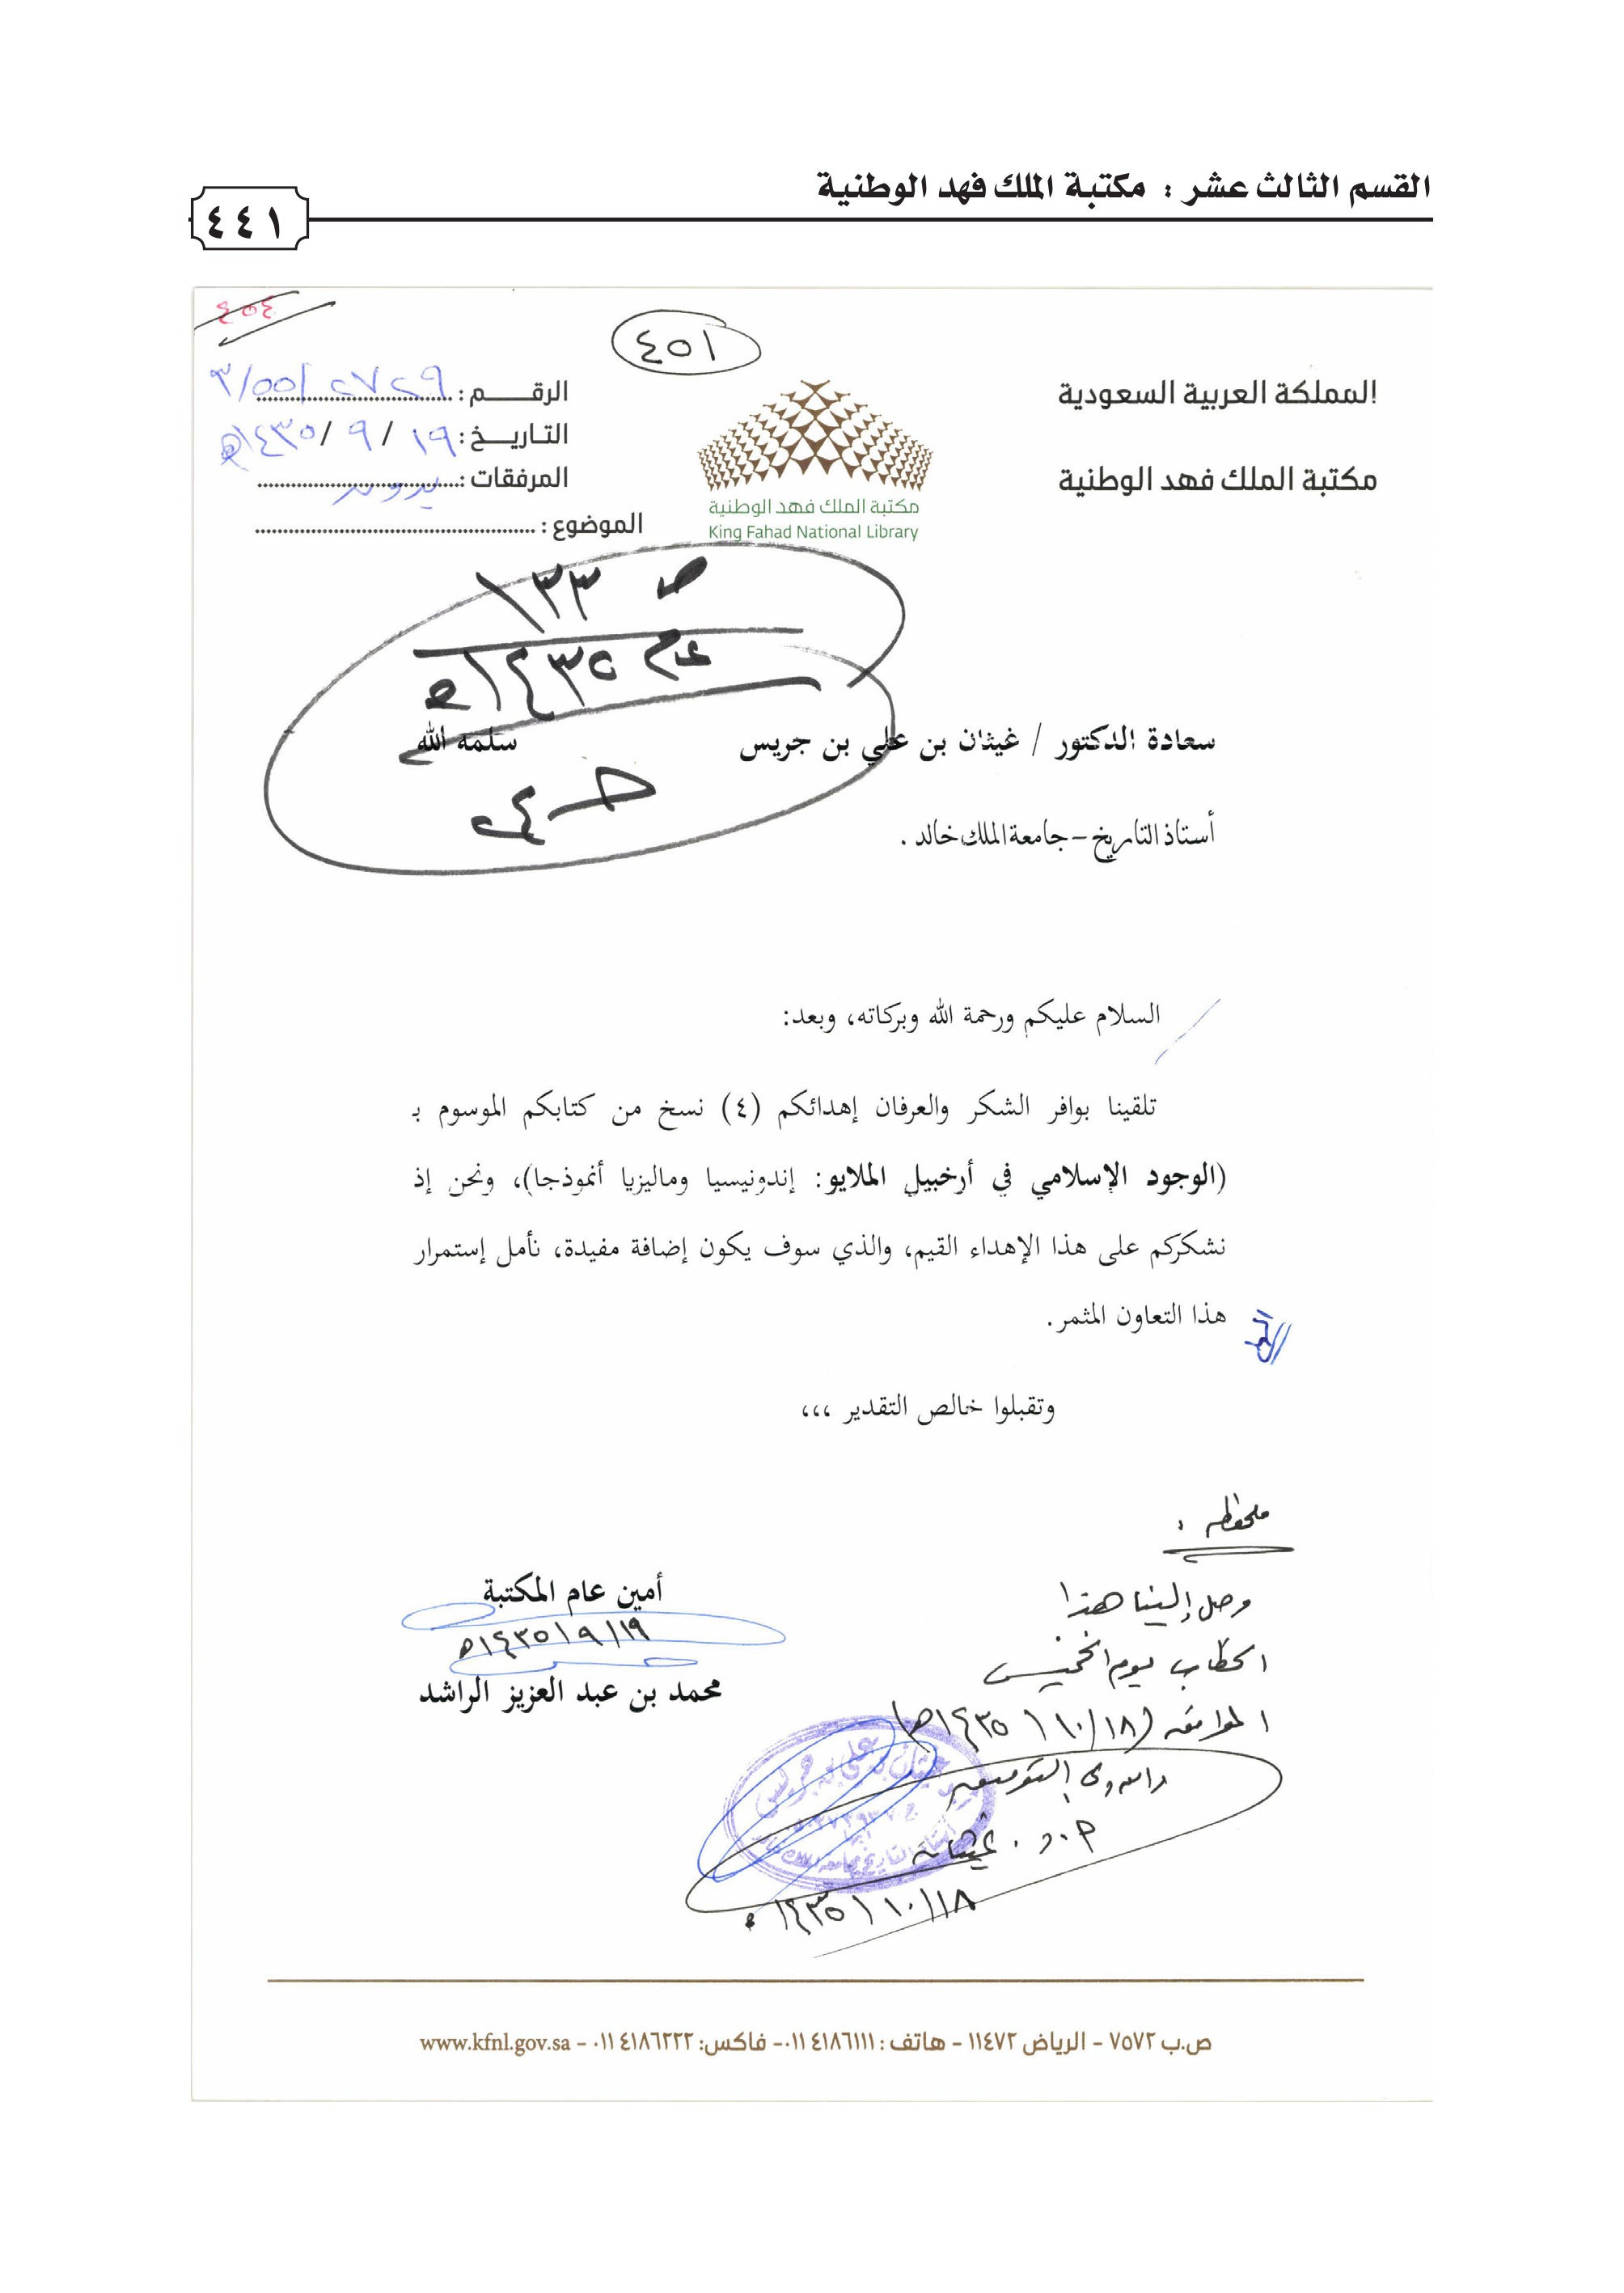 القسم الثالث عشر : مكتبة الملك فهد الوطنية
٤٤١
٤٥٤
٤٥١
المملكة العربية السعودية
مكتبة الملك فهد الوطنية
مكتبة الملك فهد الوطنية
King Fahad National Library
الرقم : ٢٧٢٩ /٥٥/٣
التاريخ : ١٩ / ٩ / ١٤٣٥هـ
المرفقات : بدون
الموضوع :
ص ١٣٣
عام ١٤٣٥هـ
سعادة الدكتور / غيثان بن علي بن جريس سلمه الله
أستاذ التاريخ – جامعة الملك خالد .
السلام عليكم ورحمة الله وبركاته، وبعد:
تلقينا بوافر الشكر والعرفان إهدائكم (٤) نسخ من كتابكم الموسوم بـ
(الوجود الإسلامي في أرخبيل الملايو: إندونيسيا وماليزيا أنموذجا)، ونحن إذ
نشكركم على هذا الإهداء القيم، والذي سوف يكون إضافة مفيدة، نأمل إستمرار
هذا التعاون المثمر.
وتقبلوا خالص التقدير ،،،
أمين عام المكتبة
١٤٣٥/٩/١٩هـ
محمد بن عبد العزيز الراشد
ملحوظه :
وصل إلينا هذا
الخطاب يوم الخميس
الموافق (١٤٣٥/١٠/١٨هـ)
والله ولي التوفيق
أ.د. غيثان
١٤٣٥/١٠/١٨هـ
ص.ب ٧٥٧٢ – الرياض ١١٤٧٢ – هاتف : ٠١١٤١٨٦١١١ – فاكس: ٠١١٤١٨٦٢٢٢ – www.kfnl.gov.sa